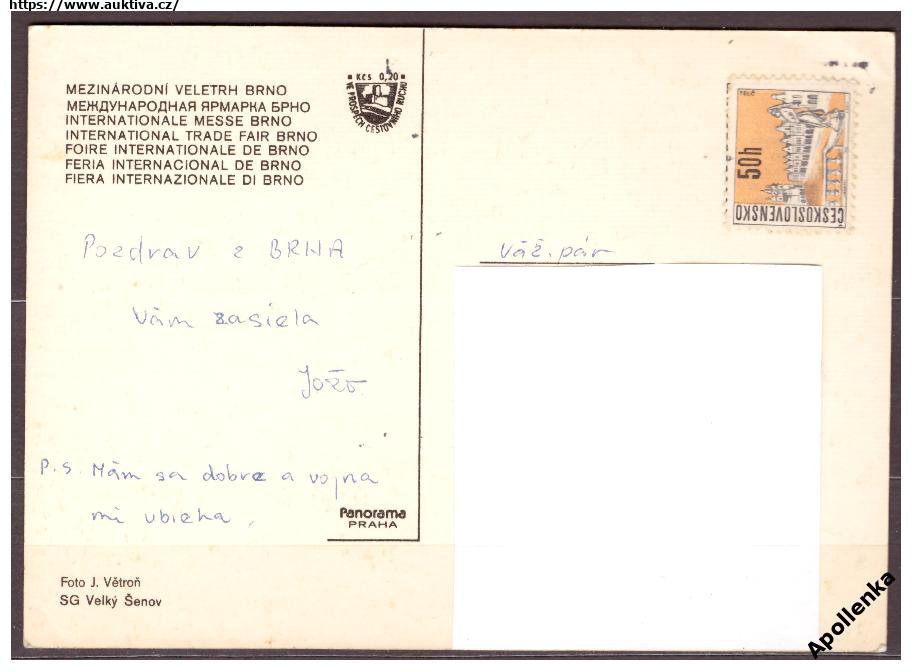 https://www.auktiva.cz/
MEZINÁRODNÍ VELETRH BRNO
МЕЖДУНАРОДНАЯ ЯРМАРКА БРНО
INTERNATIONALE MESSE BRNO
INTERNATIONAL TRADE FAIR BRNO
FOIRE INTERNATIONALE DE BRNO
FERIA INTERNACIONAL DE BRNO
FIERA INTERNAZIONALE DI BRNO
Kčs 0,20
VE PROSPĚCH CESTOVNÍHO RUCHU
TELČ
50h
ČESKOSLOVENSKO
Pozdrav z BRNA
Vám zasiela
Jožo
Váž. pár
P.S. Mám sa dobre a vojna
mi ubieha.
Panorama
PRAHA
Foto J. Větroň
SG Velký Šenov
Apollenka